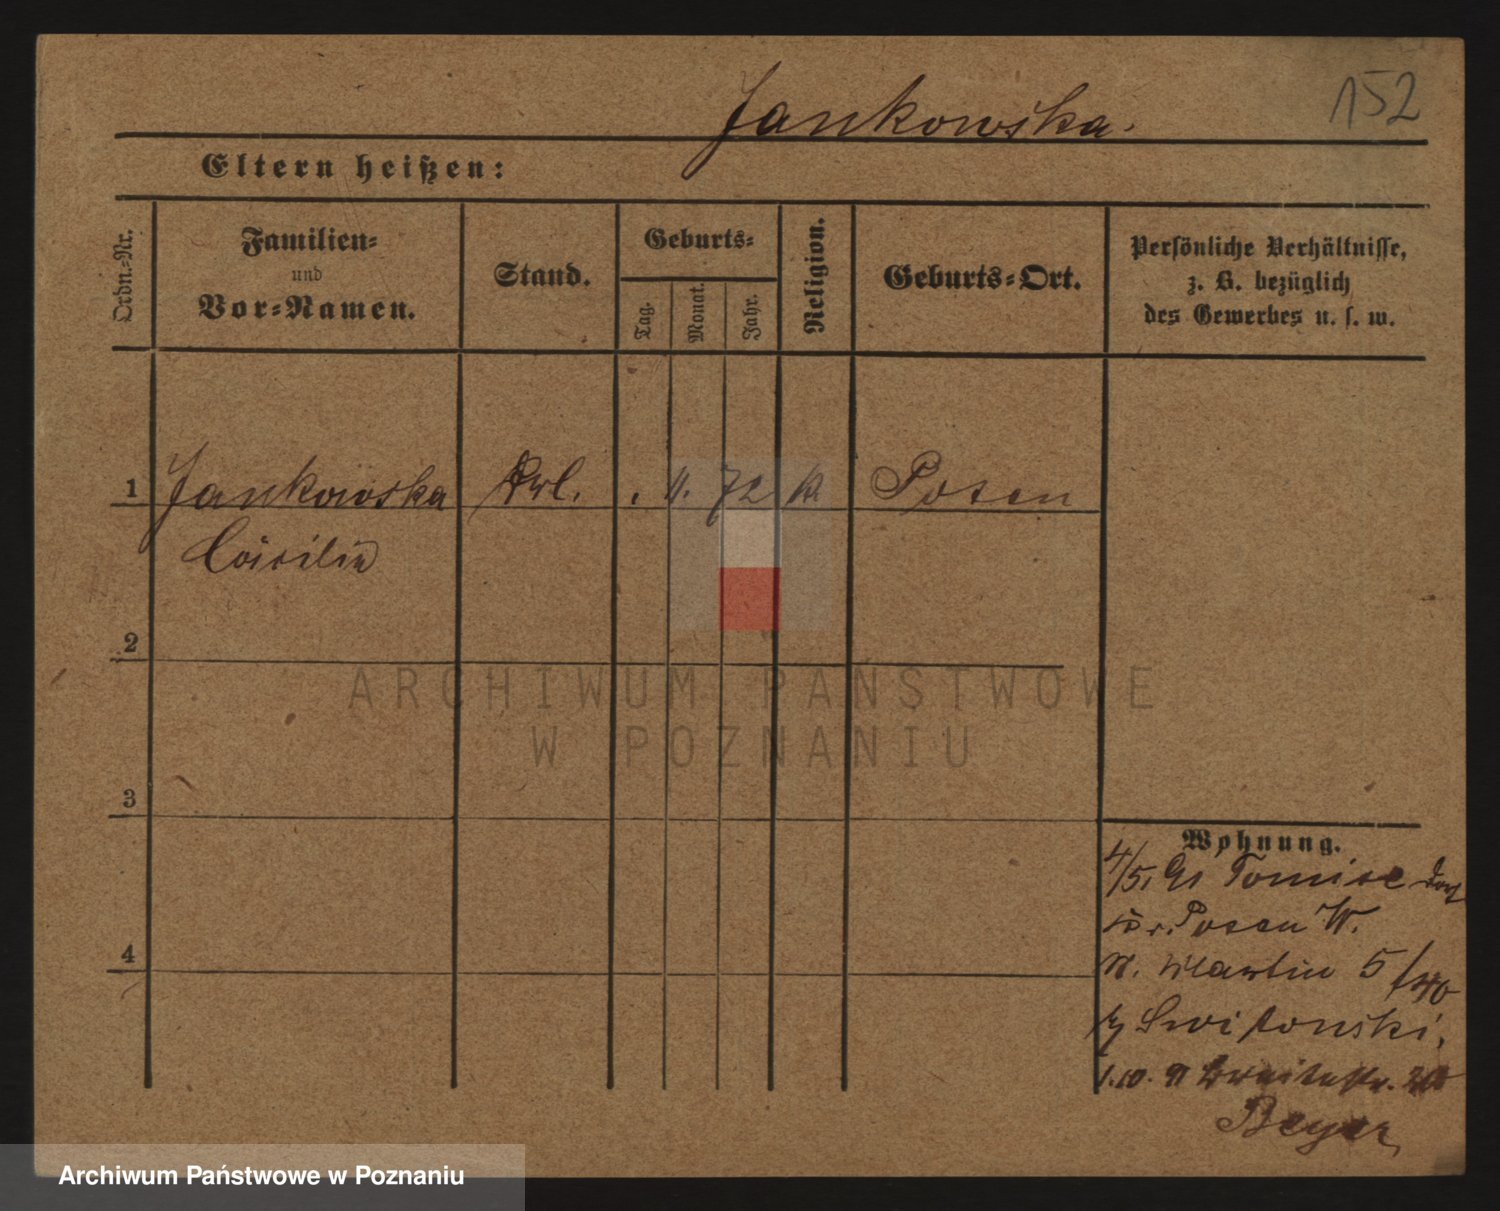 152
Jankowska.
Eltern heißen:
Ordn.-Nr.
Familien-
und
Vor-Namen.
Stand.
Geburts-
Tag.
Monat.
Jahr.
Religion.
Geburts-Ort.
Persönliche Verhältnisse,
z. B. bezüglich
des Gewerbes u. s. w.
1 Jankowska 72 Posen
2
3
4
ARCHIWUM PAŃSTWOWE
W POZNANIU
Wohnung.
4/5.
Posen W.
Martin 5/40
1.10. 91
Beyer
Archiwum Państwowe w Poznaniu